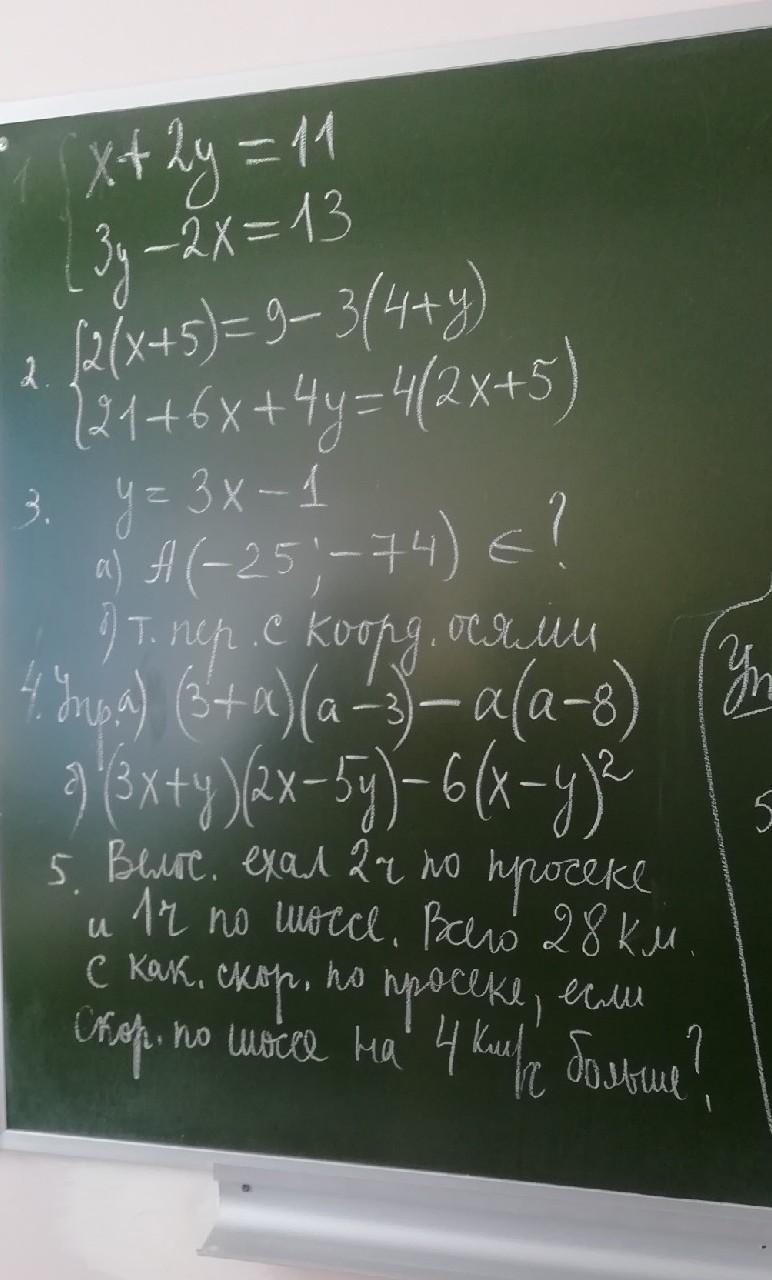 1. x+2y=11
3y-2x=13
2. 2(x+5)=9-3(4+y)
21+6x+4y=4(2x+5)
3. y=3x-1
а) A(-25;-74) ∈ ?
б) т. пер. с коорд. осями
4. Упр. а) (3+a)(a-3)-a(a-8)
б) (3x+y)(2x-5y)-6(x-y)²
5. Велос. ехал 2ч по просеке
и 1ч по шоссе. Всего 28 км.
С как. скор. по просеке, если
скор. по шоссе на 4 км/ч больше?
5